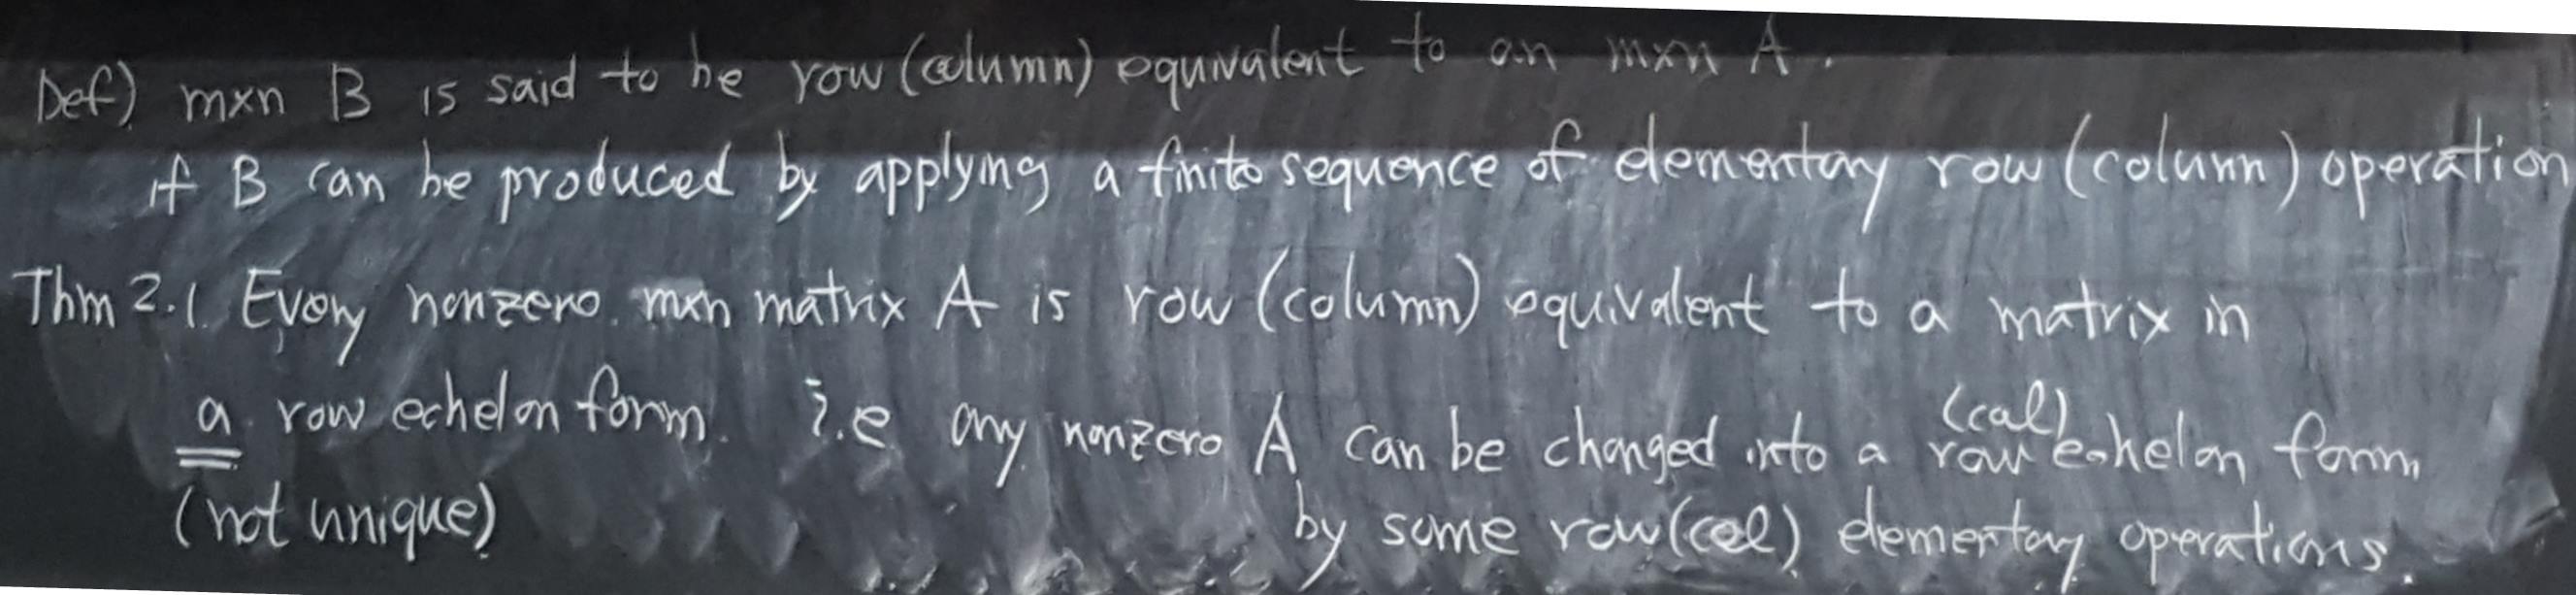 Def) m×n B is said to be row (column) equivalent to an m×n A.
if B can be produced by applying a finite sequence of elementary row (column) operation
Thm 2.1. Every nonzero m×n matrix A is row (column) equivalent to a matrix in
a row echelon form. i.e any nonzero A can be changed into a row (col) echelon form
(not unique) by some row (col) elementary operations.